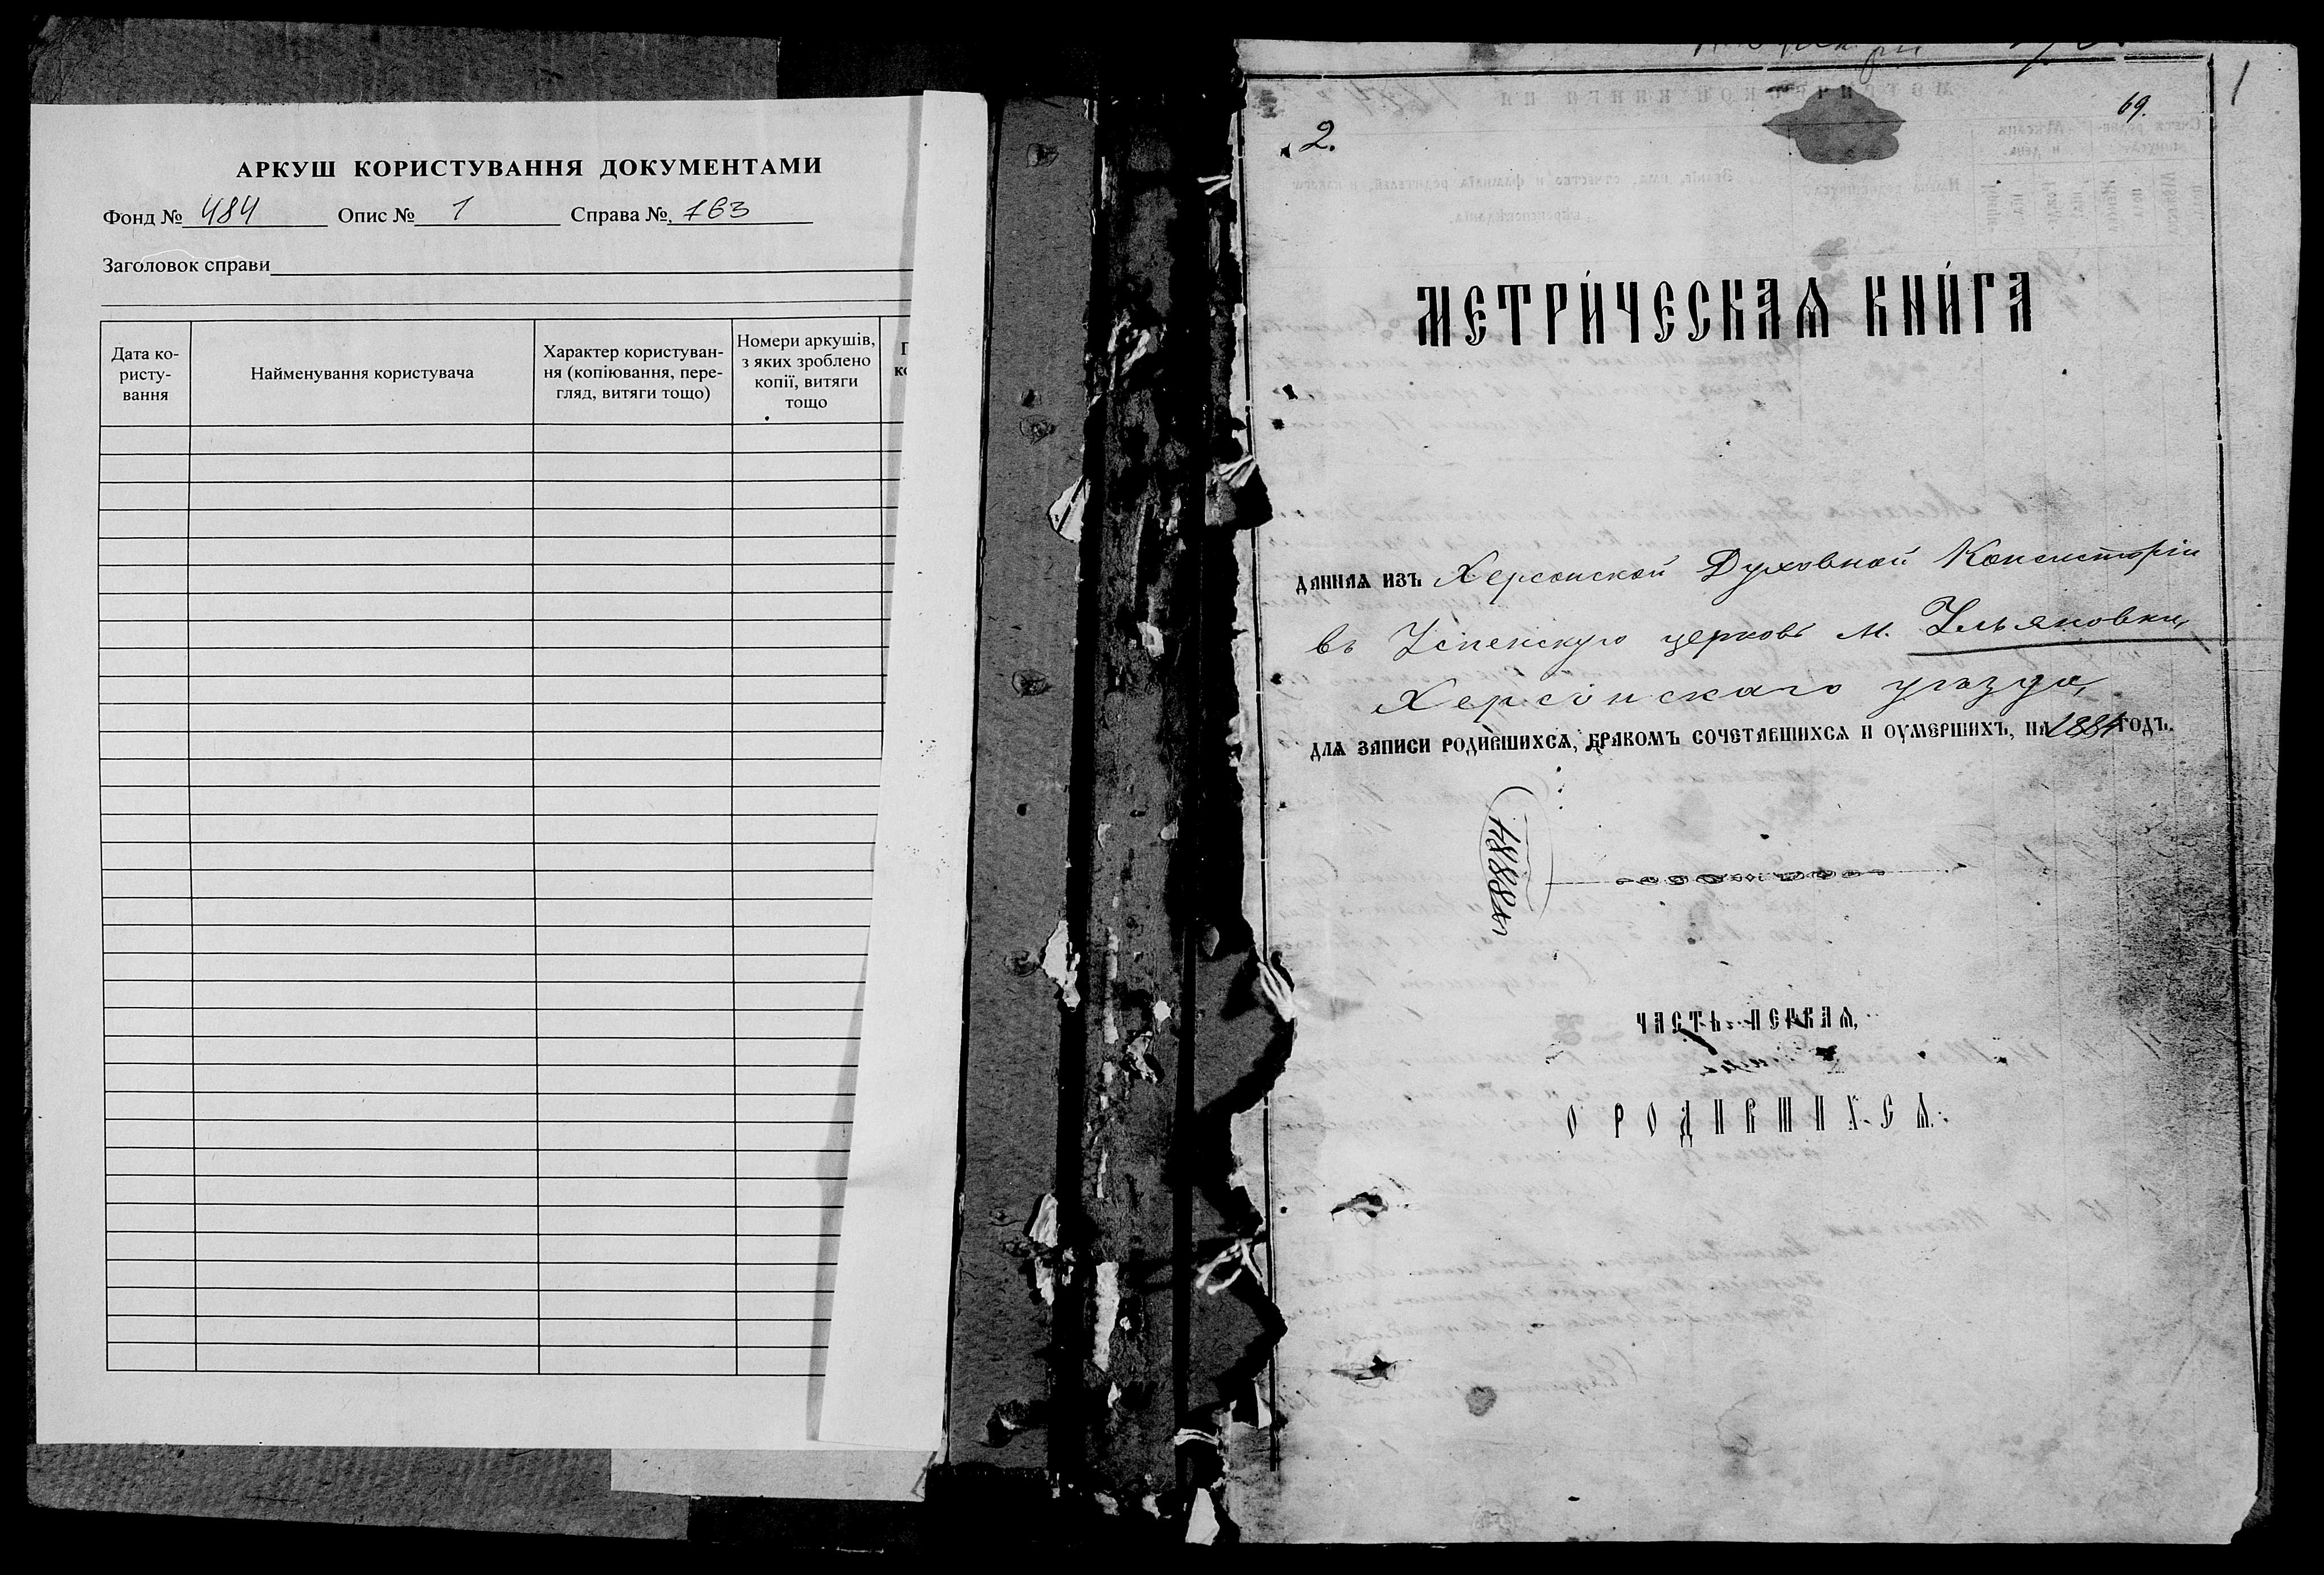 АРКУШ КОРИСТУВАННЯ ДОКУМЕНТАМИ
Фонд № 484 Опис № 1 Справа № 163
Заголовок справи
Дата ко-
ристу-
вання
Найменування користувача
Характер користуван-
ня (копіювання, пере-
гляд, витяги тощо)
Номери аркушів,
з яких зроблено
копії, витяги
тощо
1
69.
2.
МЕТРИ́ЧЕСКАѦ КНИ́ГА
ДАННАѦ ИЗЪ Херсонской Духовной Консисторіи
въ Успенскую церковь м. Ульяновки,
Херсонскаго уѣзда,
ДЛѦ ЗАПИСИ РОДИВШИХСѦ, БРАКОМЪ СОЧЕТАВШИХСѦ И ОУМЕРШИХЪ, НА 1884 ГОДЪ.
ЧАСТЬ ПЕРВАѦ,
О РОДИВШИХСѦ.